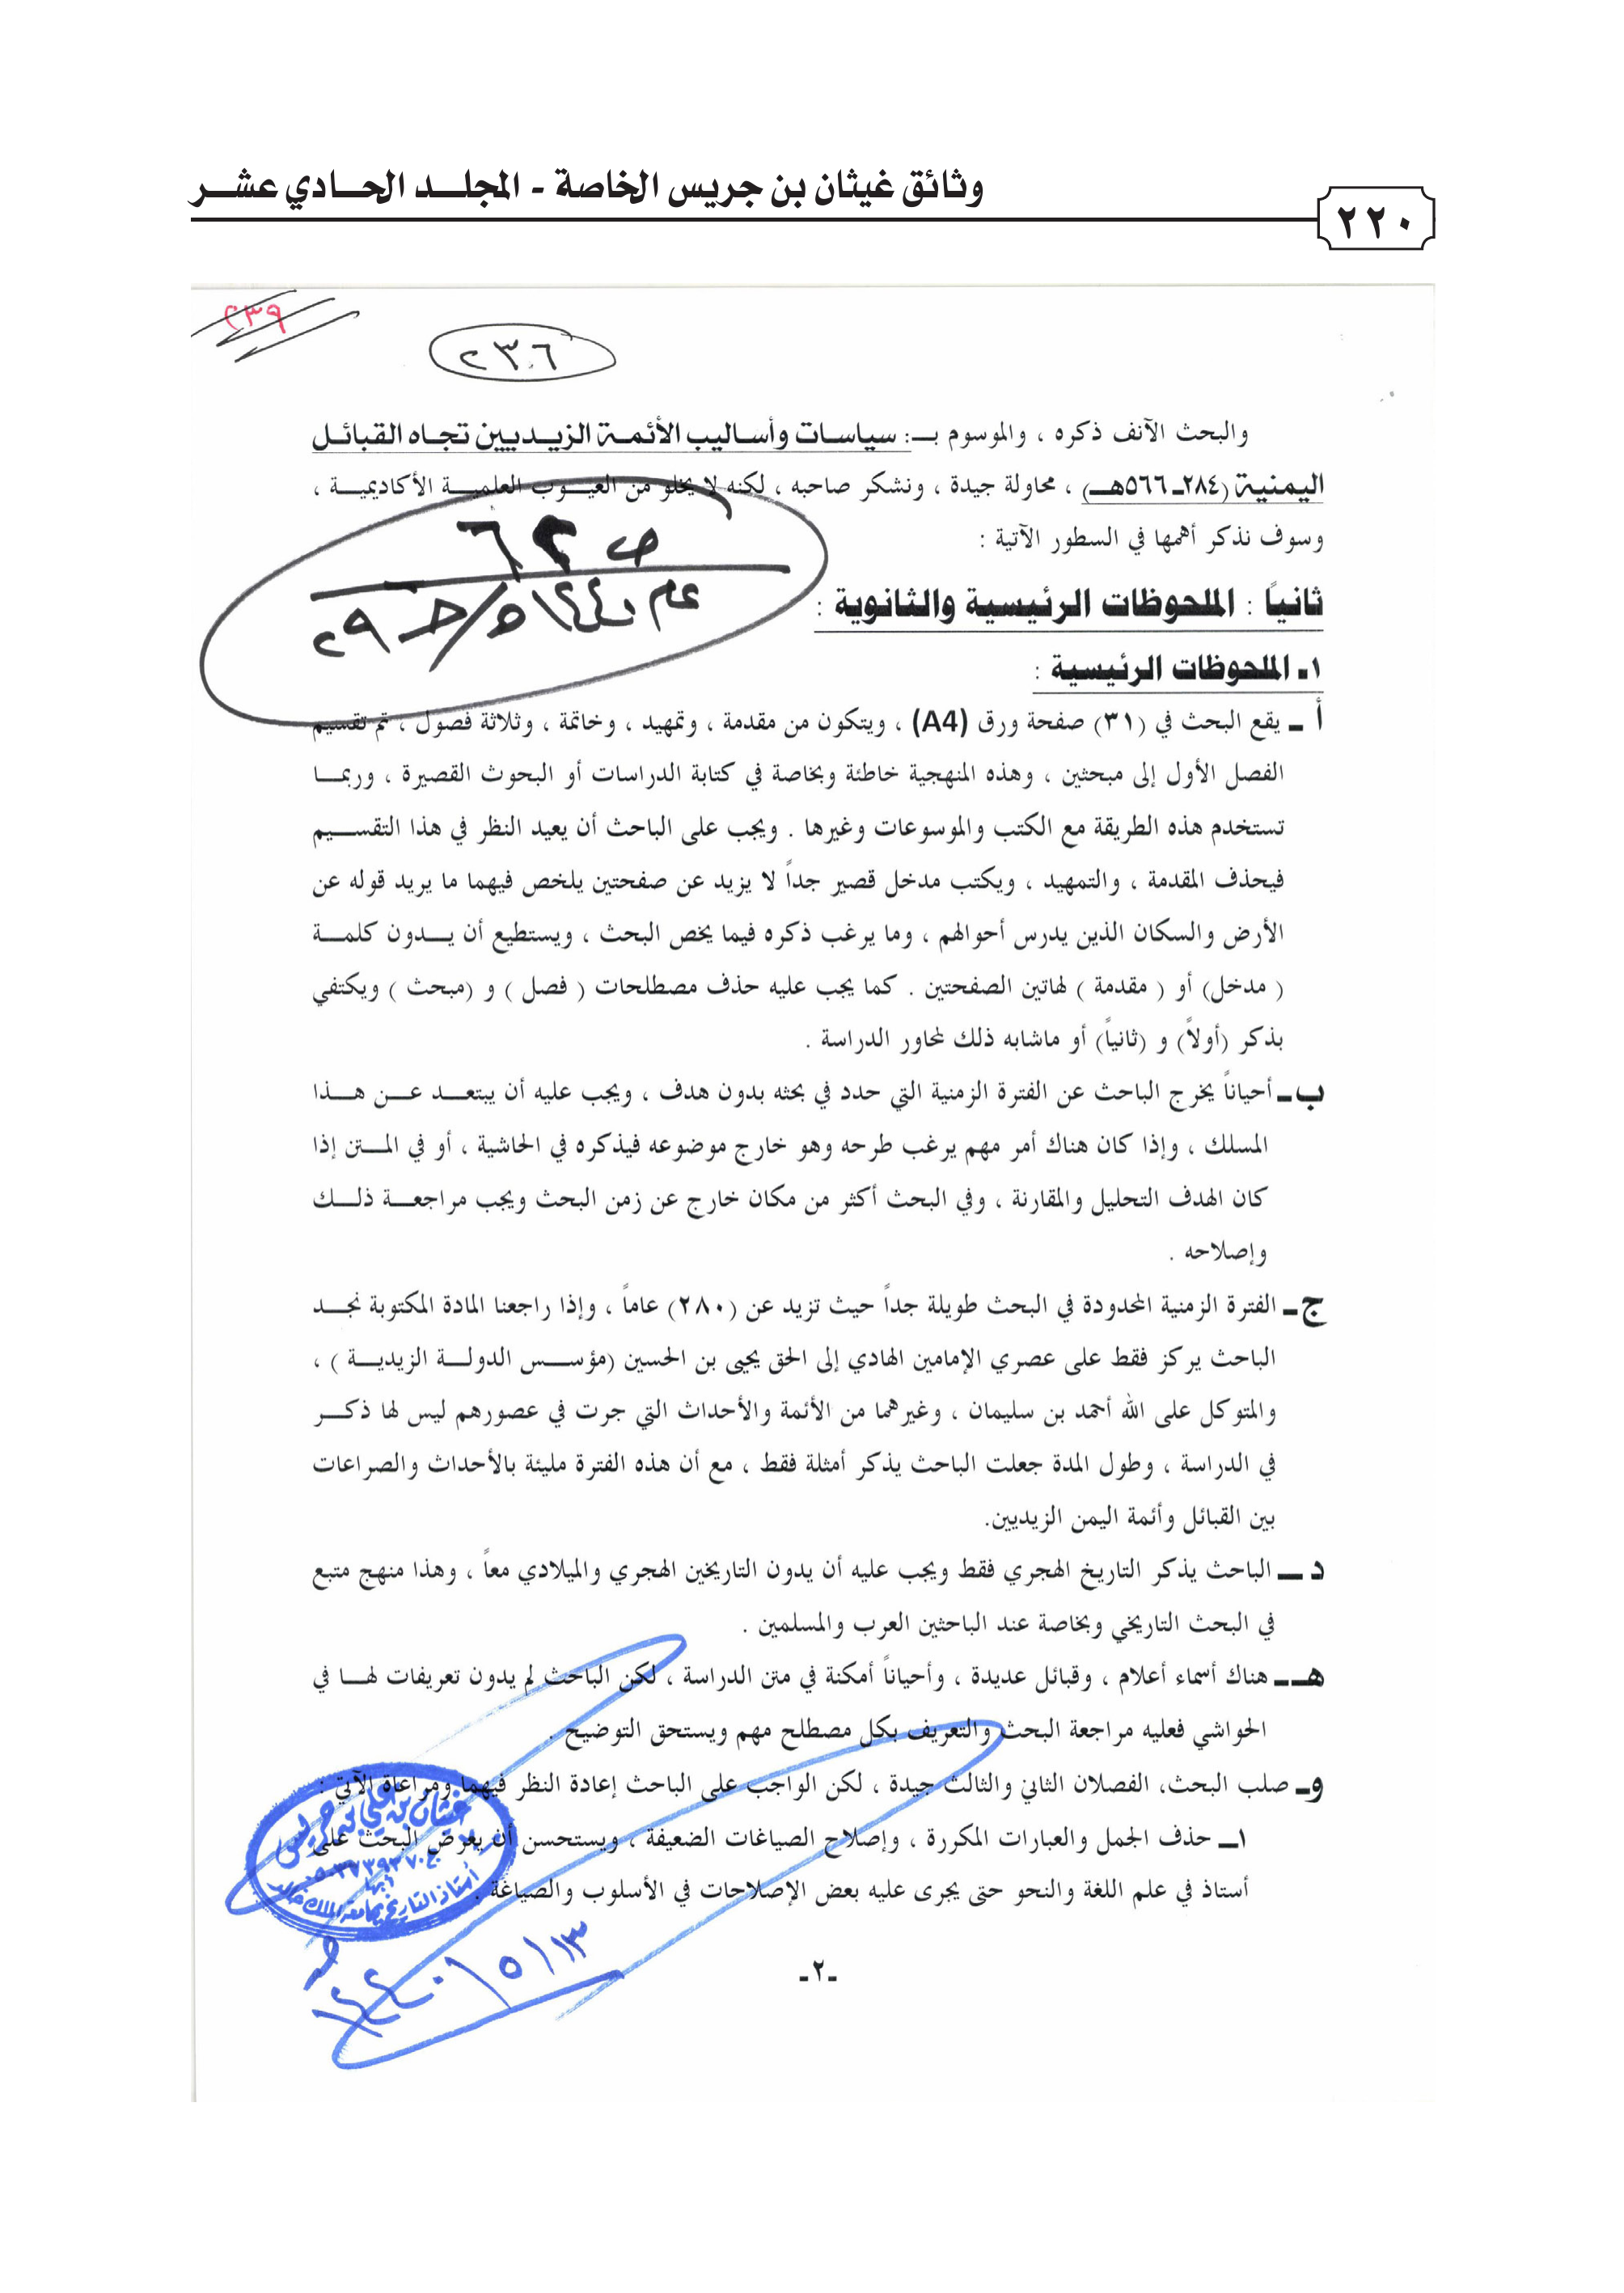 وثائق غيثان بن جريس الخاصة - المجلـد الحـادي عشـر
٢٢٠
٢٣٩
٢٣٦
والبحث الآنف ذكره ، والموسوم بـ: سياسات وأساليب الأئمة الزيديين تجاه القبائل
اليمنية (٢٨٤ـ ٥٦٦هـ) ، محاولة جيدة ، ونشكر صاحبه ، لكنه لا يخلو من العيوب العلمية الأكاديمية ،
وسوف نذكر أهمها في السطور الآتية :
ثانياً : الملحوظات الرئيسية والثانوية :
١ـ الملحوظات الرئيسية :
أ ـ يقع البحث في (٣١) صفحة ورق (A4) ، ويتكون من مقدمة ، وتمهيد ، وخاتمة ، وثلاثة فصول ، تم تقسيم
الفصل الأول إلى مبحثين ، وهذه المنهجية خاطئة وبخاصة في كتابة الدراسات أو البحوث القصيرة ، وربما
تستخدم هذه الطريقة مع الكتب والموسوعات وغيرها . ويجب على الباحث أن يعيد النظر في هذا التقسيم
فيحذف المقدمة ، والتمهيد ، ويكتب مدخل قصير جداً لا يزيد عن صفحتين يلخص فيهما ما يريد قوله عن
الأرض والسكان الذين يدرس أحوالهم ، وما يرغب ذكره فيما يخص البحث ، ويستطيع أن يدون كلمة
( مدخل) أو ( مقدمة ) لهاتين الصفحتين . كما يجب عليه حذف مصطلحات ( فصل ) و (مبحث ) ويكتفي
بذكر (أولاً) و (ثانياً) أو ماشابه ذلك لمحاور الدراسة .
ب ـ أحياناً يخرج الباحث عن الفترة الزمنية التي حدد في بحثه بدون هدف ، ويجب عليه أن يبتعد عن هذا
المسلك ، وإذا كان هناك أمر مهم يرغب طرحه وهو خارج موضوعه فيذكره في الحاشية ، أو في المتن إذا
كان الهدف التحليل والمقارنة ، وفي البحث أكثر من مكان خارج عن زمن البحث ويجب مراجعة ذلك
وإصلاحه .
ج ـ الفترة الزمنية المحدودة في البحث طويلة جداً حيث تزيد عن (٢٨٠) عاماً ، وإذا راجعنا المادة المكتوبة نجد
الباحث يركز فقط على عصري الإمامين الهادي إلى الحق يحيى بن الحسين (مؤسس الدولة الزيدية ) ،
والمتوكل على الله أحمد بن سليمان ، وغيرهما من الأئمة والأحداث التي جرت في عصورهم ليس لها ذكر
في الدراسة ، وطول المدة جعلت الباحث يذكر أمثلة فقط ، مع أن هذه الفترة مليئة بالأحداث والصراعات
بين القبائل وأئمة اليمن الزيديين.
د ـ الباحث يذكر التاريخ الهجري فقط ويجب عليه أن يدون التاريخين الهجري والميلادي معاً ، وهذا منهج متبع
في البحث التاريخي وبخاصة عند الباحثين العرب والمسلمين .
هـ ـ هناك أسماء أعلام ، وقبائل عديدة ، وأحياناً أمكنة في متن الدراسة ، لكن الباحث لم يدون تعريفات لها في
الحواشي فعليه مراجعة البحث والتعريف بكل مصطلح مهم ويستحق التوضيح .
و ـ صلب البحث، الفصلان الثاني والثالث جيدة ، لكن الواجب على الباحث إعادة النظر فيهما ومراعاة الآتي :
١ـ حذف الجمل والعبارات المكررة ، وإصلاح الصياغات الضعيفة ، ويستحسن أن يعرض البحث على
أستاذ في علم اللغة والنحو حتى يجرى عليه بعض الإصلاحات في الأسلوب والصياغة .
غيثان بن علي بن جريس
أبها
أستاذ التاريخ بجامعة الملك خالد
ـ٢ـ